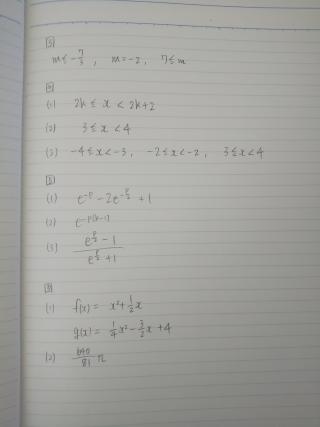 5
m ≤ -7/3, m = -2, 7 ≤ m
(1) 2k ≤ x < 2k+2
(2) 3 ≤ x < 4
(3) -4 ≤ x < -3, -2 ≤ x < -2, 3 ≤ x < 4
(1) e^-p - 2e^-p/2 + 1
(2) e^-p(k-1)
(3) (e^p/2 - 1)/(e^p/2 + 1)
(1) f(x) = x² + 1/2 x
g(x) = 1/4 x² - 3/2 x + 4
(2) 640/81 π